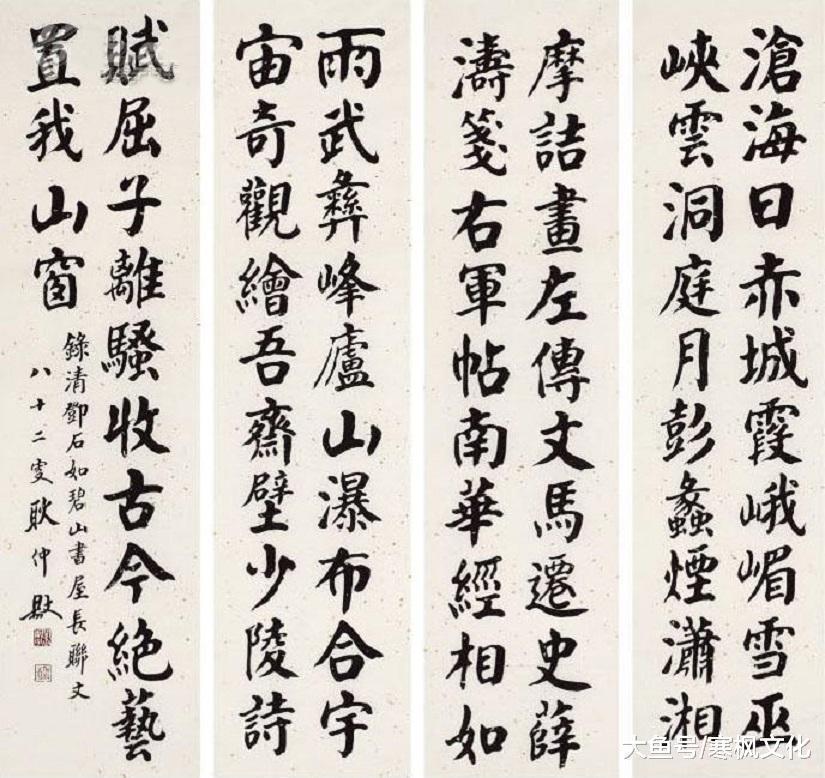 滄海日赤城霞峨嵋雪巫
峽雲洞庭月彭蠡煙瀟湘
摩詰畫左傳文馬遷史薛
濤箋右軍帖南華經相如
雨武彝峰廬山瀑布合宇
宙奇觀繪吾齋壁少陵詩
賦屈子離騷收古今絕藝
置我山窗
錄清鄧石如碧山書屋長聯文
八十二叟耿仲敭
大鱼号/寒枫文化